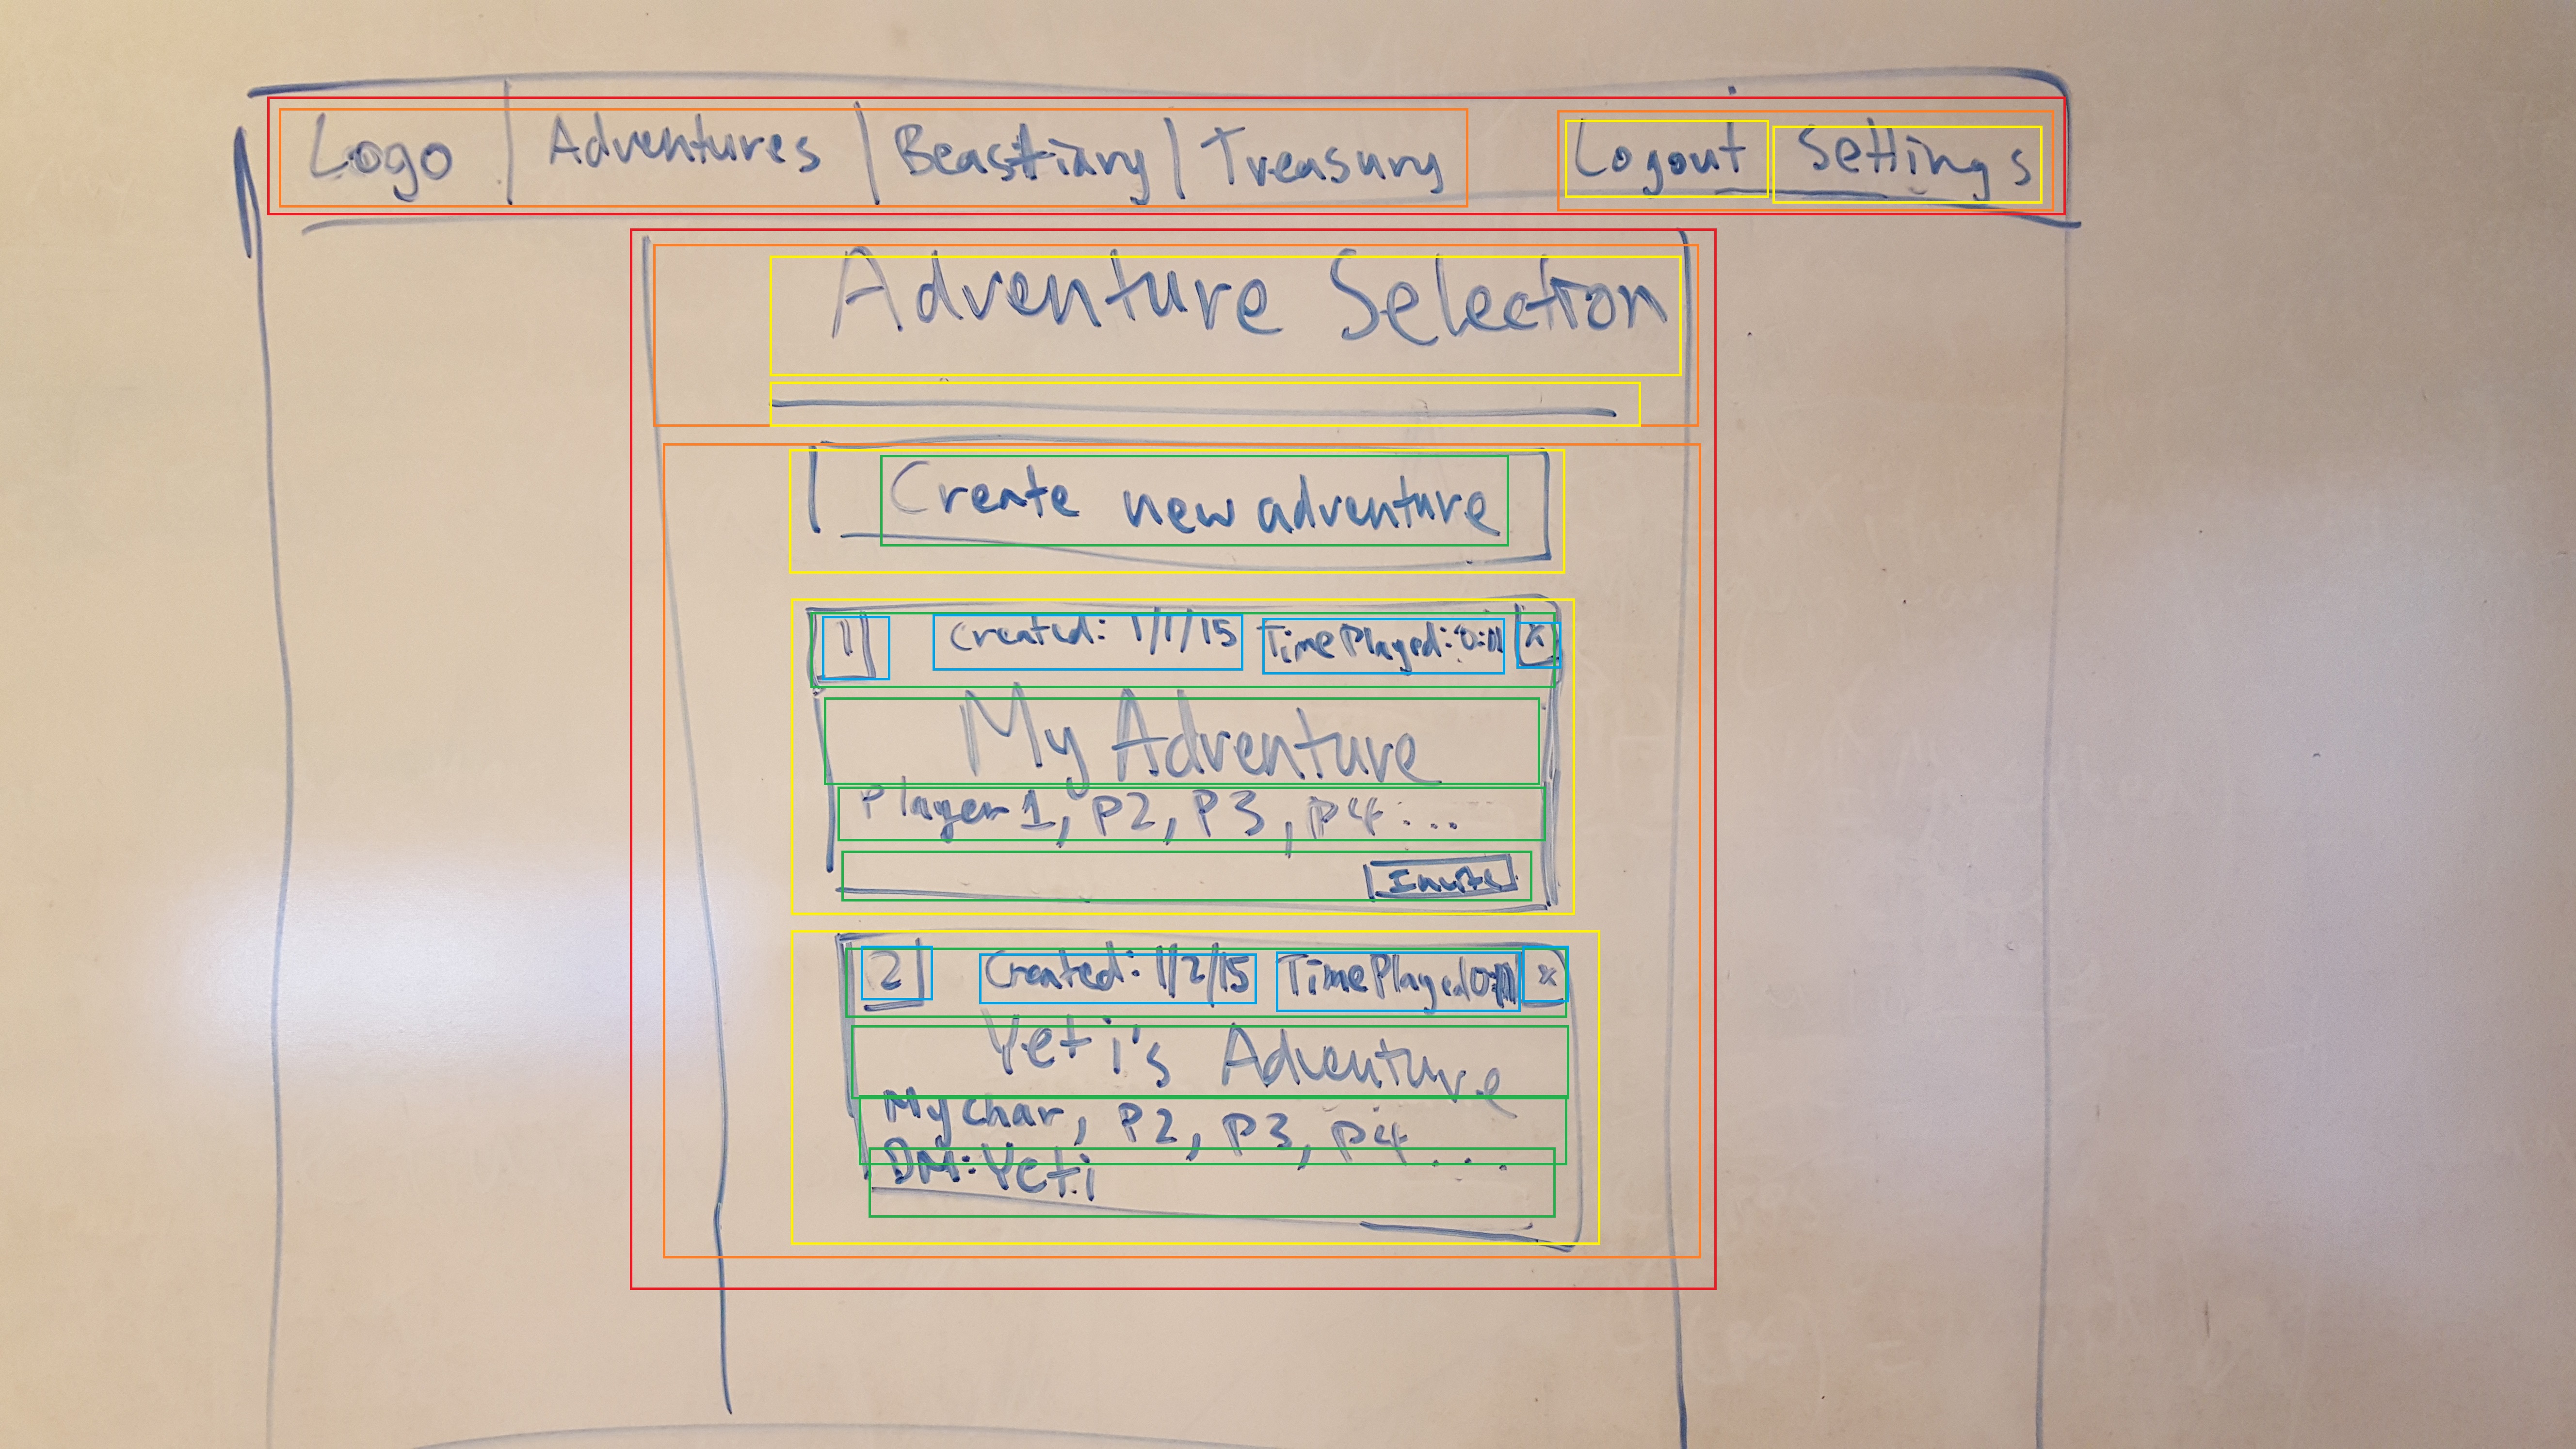 Logo | Adventures | Beastiary | Treasury Logout Settings
Adventure Selection
Create new adventure
1 Created: 1/1/15 TimePlayed: 0:11 x
My Adventure
Player 1, P2, P3, P4...
Invite
2 Created: 1/2/15 TimePlayed 0:11 x
Yeti's Adventure
My char, P2, P3, P4 ...
DM: Yeti